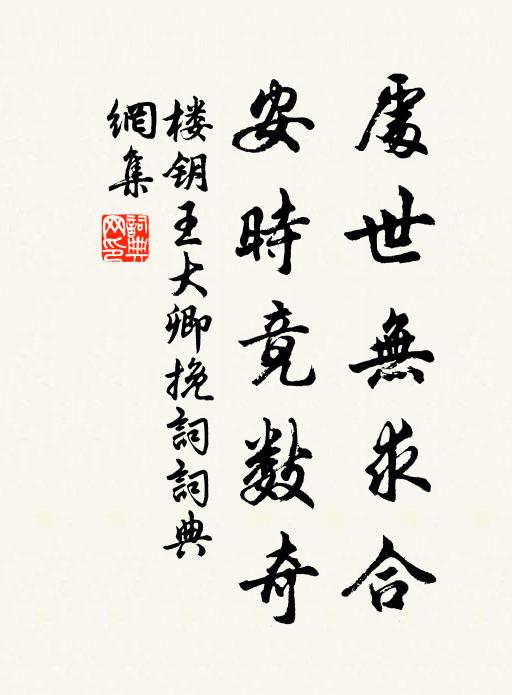 處世無求合
安時竟數奇
楼钥王大卿挽詞詞典
網集
詞典网印